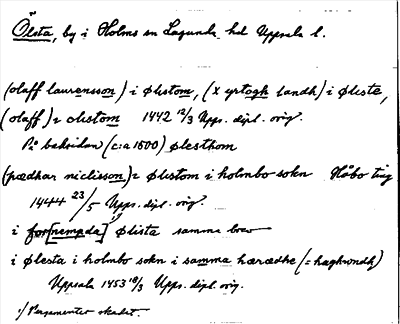 Ölsta, by i Holms sn Lagunda hd Uppsala l.
(olaff laurensson) i ølistom, (x yrtogh landh) i øliste,
(olaff) 2 olistom 1442 12/3 Upps. dipl. orig.
På baksidan (c:a 1600) ølesthom
(pædhar niclisson) 2 ølistom i holmbo sokn Håbo ting
1444 23/5 Upps. dipl. orig.
i for[nempda] 1) ølista samma brev
i ølesta i holmbo sokn i samma hæredhe (= haghrondh)
Uppsala 1453 10/3 Upps. dipl. orig.
1/ Pergamentet skadat.